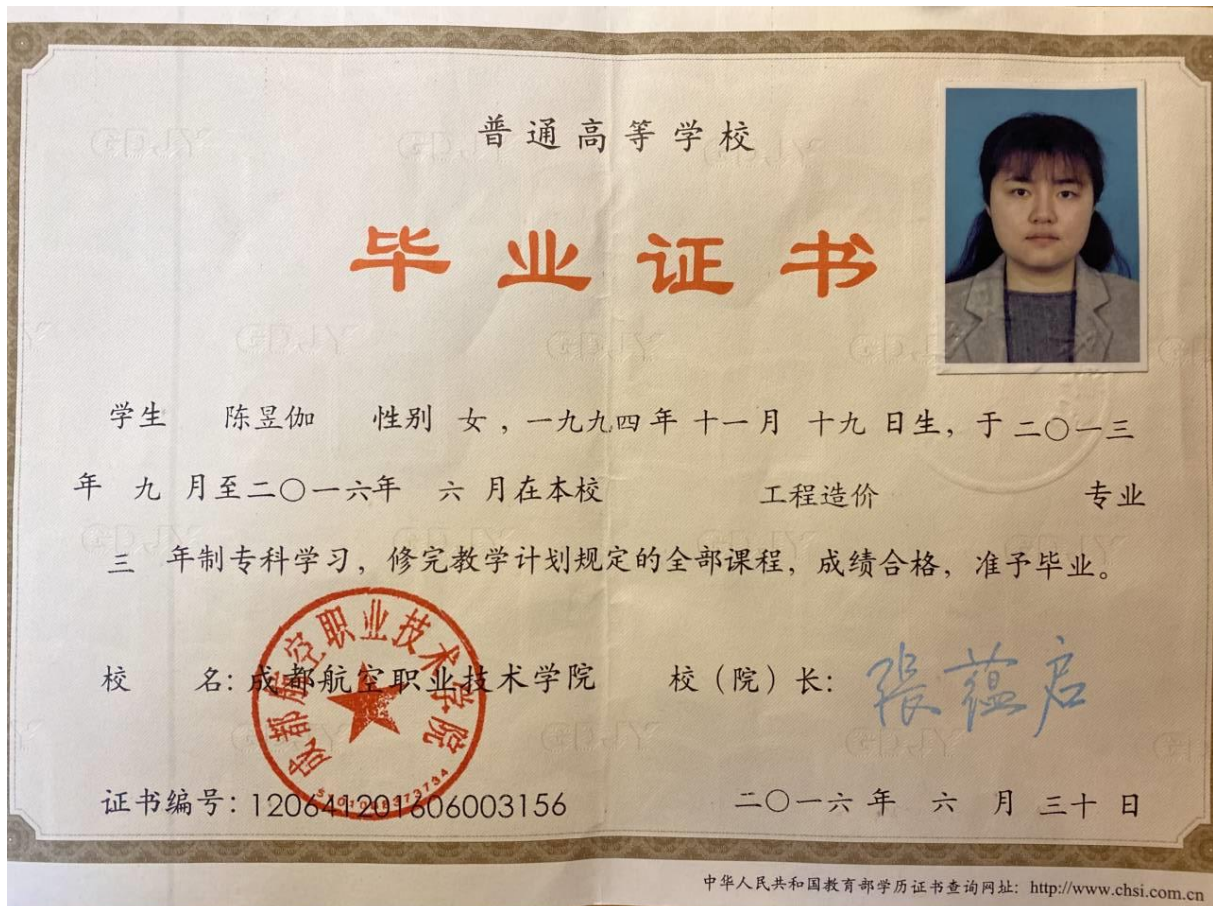 普通高等学校
毕业证书
学生 陈昱伽 性别 女，一九九四年 十一月 十九 日生，于二〇一三
年 九 月至二〇一六年 六 月在本校 工程造价 专业
三 年制专科学习，修完教学计划规定的全部课程，成绩合格，准予毕业。
校 名：成都航空职业技术学院 校（院）长：张蕴启
成都航空职业技术学院
证书编号：120641201606003156 二〇一六年 六 月 三十 日
中华人民共和国教育部学历证书查询网址：http://www.chsi.com.cn
GDJY